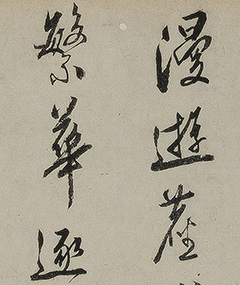 漫遊塵
繁華逐